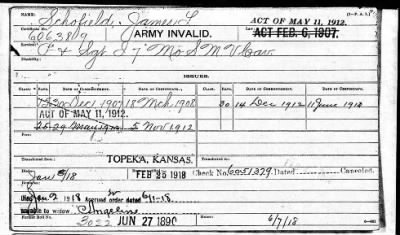 NAME: Schofield, James L (3-1081 P. A. D.)
Certificate No. ARMY INVALID. ACT OF MAY 11, 1912.
606389 ACT FEB. 6, 1907.
F & Sgt I 7" Mo S M V Cav
ISSUES.
RATE. DATE OF COMMENCEMENT. DATE OF CERTIFICATE. RATE. DATE OF COMMENCEMENT. DATE OF CERTIFICATE.
20 Dec 1907 18 Mch 1908 30 14 Dec 1912 11 June 1913
ACT OF MAY 11, 1912.
5 Nov 1912
Transferred from TOPEKA, KANSAS. Transferred to
Jan 8/18 FEB 25 1918 Check No. Dated Canceled
Died Jan 2 1918 Accrued order dated 6/11-18
payable to widow Angeline
3022 JUN 27 1890 6/7/18